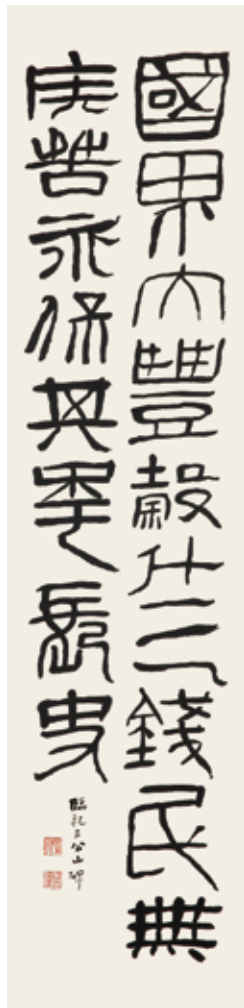 國界大豐穀斗三錢民無
疾苦永保其年長史
臨祀三公山碑